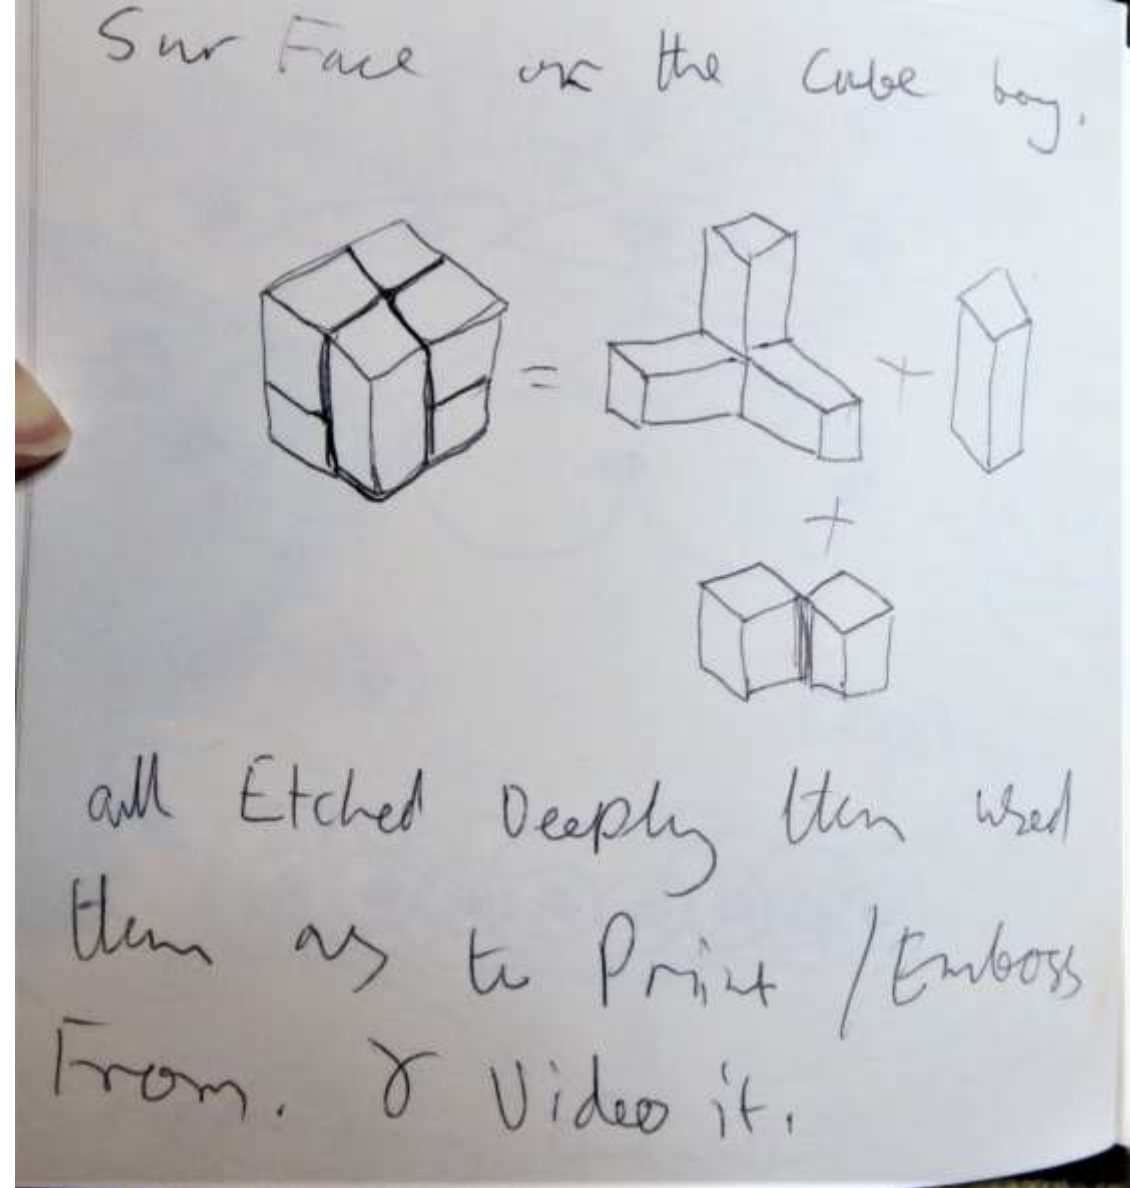 Surface on the Cube bag.
= +
+
all Etched Deeply then used
them as to Print / Emboss
From. & Video it.